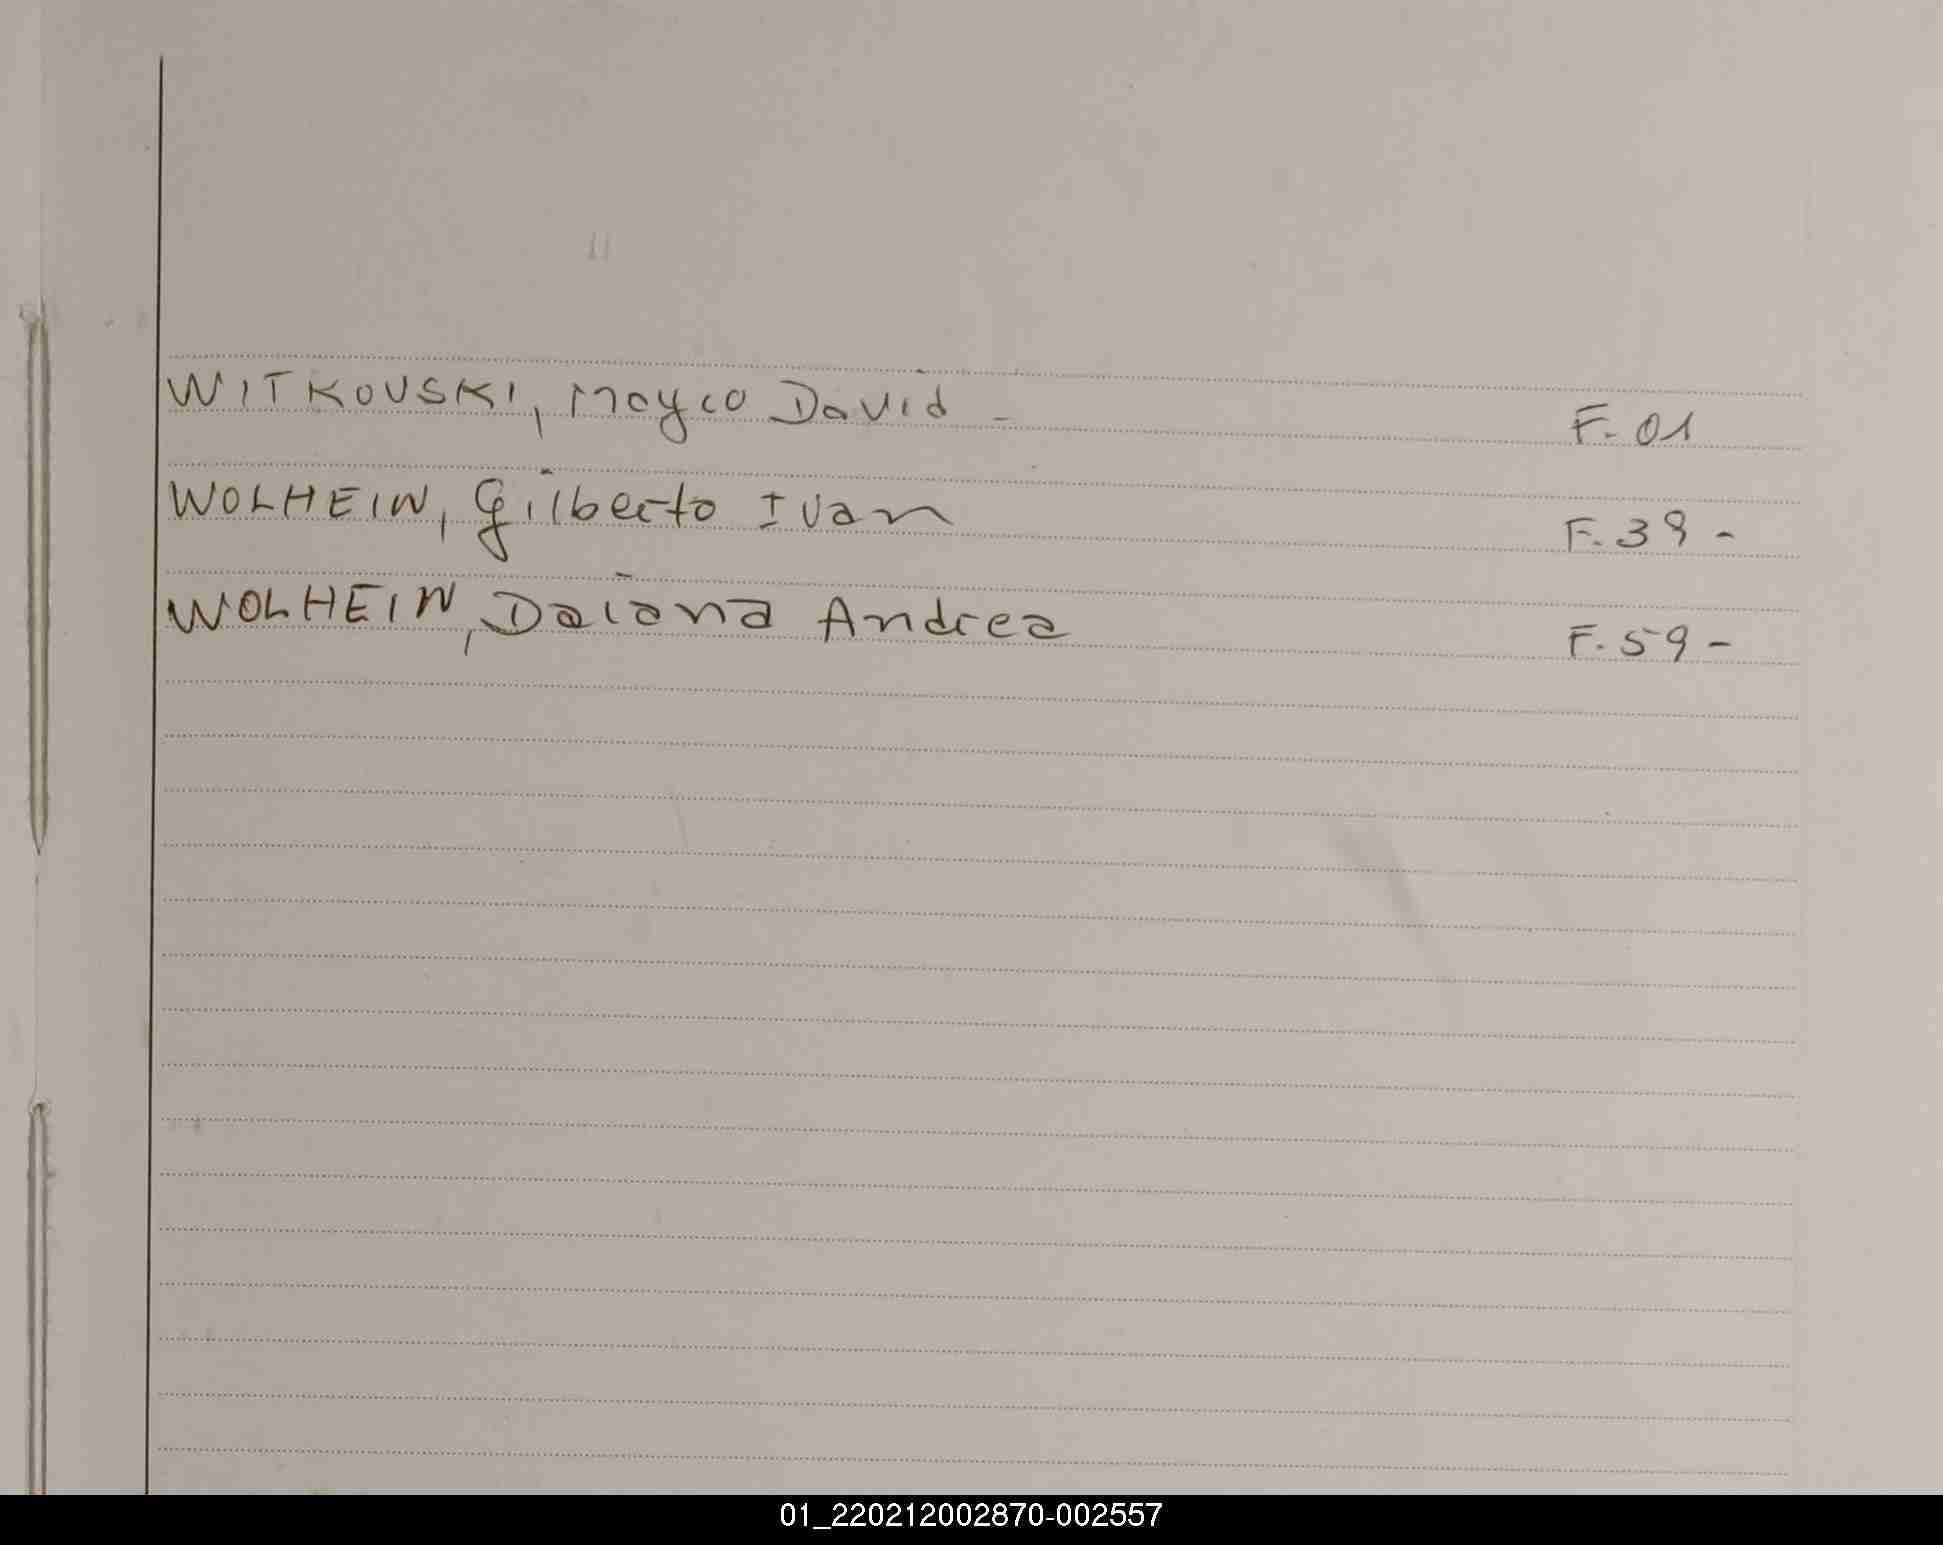 WITKOVSKI, Mayco David - F. 01
WOLHEIN, Gilberto Ivan F. 39 -
WOLHEIN, Daiana Andrea F. 59 -
01_220212002870-002557